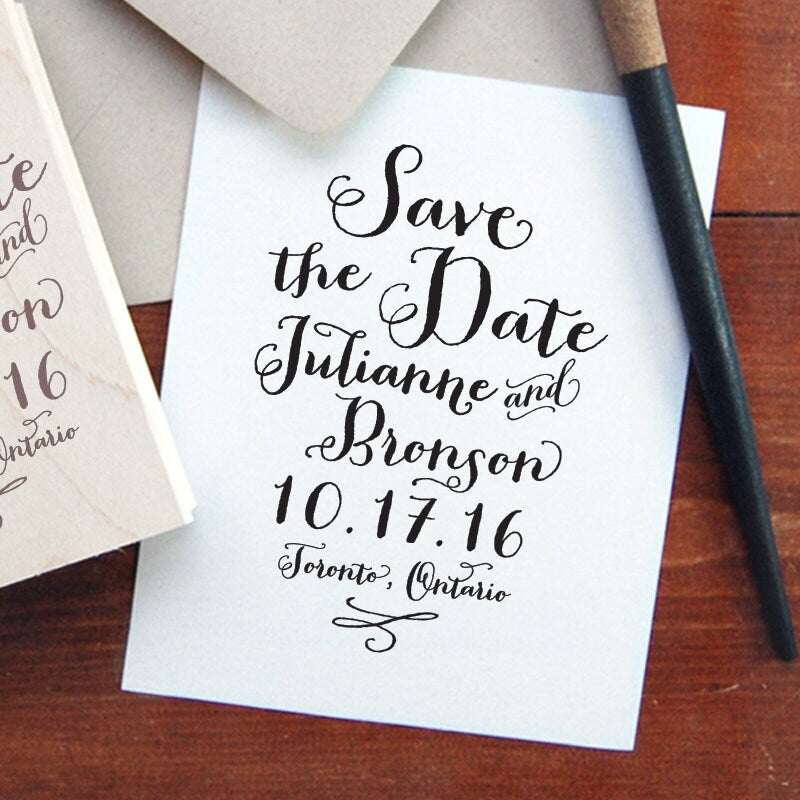 Save
the Date
Julianne and
Bronson
10.17.16
Toronto, Ontario
te
and
on
16
Ontario